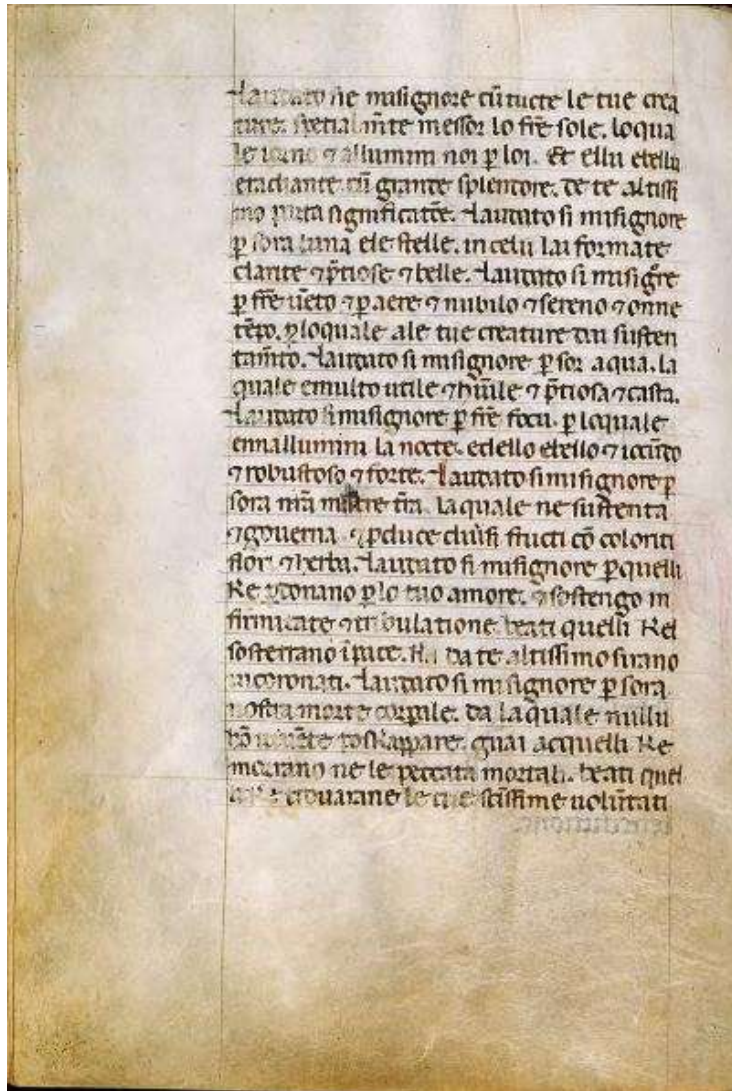 Laudato sie misignore cū tucte le tue crea
ture. spetialm̄te messor lo fr̄e sole. loqua
le iorno ⁊ allumini noi ꝑ loi. Et ellu ebellu
eradiante cū grande splendore. de te altissi
mo porta significatōe. Laudato si misignore
ꝑ sora luna ele stelle. in celu lai formate
clarite ⁊ p̄tiose ⁊ belle. Laudato si misigr̄e
ꝑ fr̄e uēto ⁊ ꝑ aere ⁊ nubilo ⁊ sereno ⁊ onne
tēpo. ꝑ loquale ale tue creature dai susten
tam̄to. Laudato si misignore ꝑ sor aqua. la
quale emulto utile ⁊ hūile ⁊ p̄tiosa ⁊ casta.
Laudato si misignore ꝑ fr̄e focu. ꝑ loquale
ennallumini la nocte. edello ebello ⁊ iocūdo
⁊ robustoso ⁊ forte. Laudato si misignore ꝑ
sora nr̄a matre tr̄a. laquale ne sustenta
⁊ gouerna. ⁊ ꝓduce diu̓si fructi cō coloriti
flori ⁊ herba. Laudato si misignore ꝑ quelli
ke ꝑdonano ꝑ lo tuo amore. ⁊ sostengo in
firmitate ⁊ tribulatione beati quelli ke l
sosterrano ī pace. ka da te altissimo sirano
incoronati. Laudato si misignore ꝑ sora
nostra morte corꝑale. da laquale nullu
hō uiuēte poskappare. guai acquelli ke
morrano ne le peccata mortali. beati quel
li ke trouarane le tue sc̄issime uolūtati